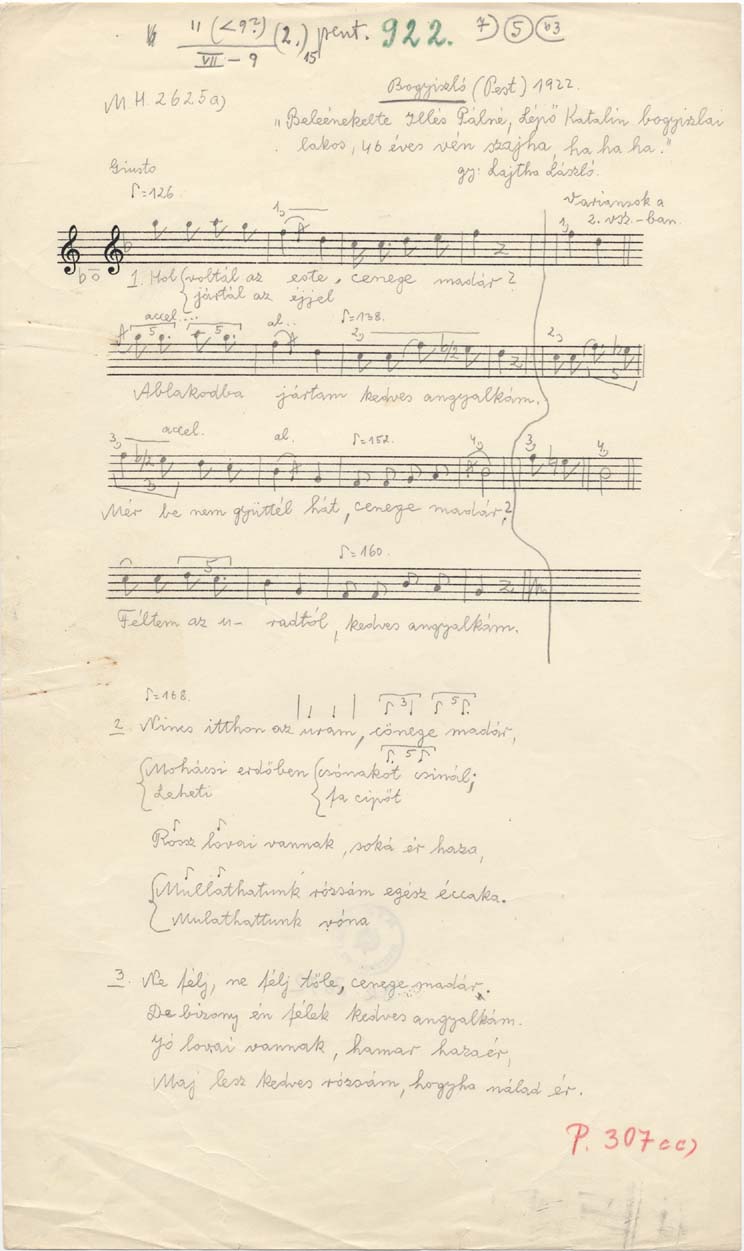 11 (<9?) (2.) pent. 922. 7) 5 b3
VII – 9 15
Bogyiszló (Pest) 1922.
M.H. 2625a)
"Beleénekelte Illés Pálné, Lépő Katalin bogyiszlai
lakos, 46 éves vén szajha, ha ha ha."
gy: Lajtha László.
Giusto
♪=126
Variansok a
2. vsz.-ban.
1. Hol { voltál az este, cenege madár?
{ jártál az éjjel
accel.... al... ♪=138.
Ablakodba jártam kedves angyalkám.
accel. al. ♪=152.
Mér be nem gyüttél hát, cenege madár?
♪=160.
Féltem az u- radtól, kedves angyalkám.
♪=168.
2. Nincs itthon az uram, cönege madár,
{ Mohácsi erdőben { csónakot csinál;
{ Leheti { fa cipőt
Rossz lovai vannak, soká ér haza,
{ Mullathatunk rózsám egész éccaka.
{ Mulathattunk vóna
3. Ne félj, ne félj tőle, cenege madár.
De bizony én félek kedves angyalkám.
Jó lovai vannak, hamar hazaér,
Maj lesz kedves rózsám, hogyha nálad ér.
P. 307cc)